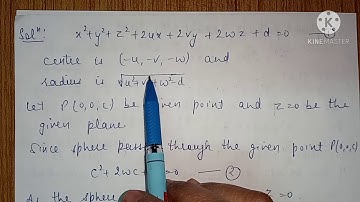 Solⁿ: x²+y²+z²+2ux+2vy+2wz+d=0
centre is (-u, -v, -w) and
radius is √u²+v²+w²-d
Let P(0,0,c) be given point and z=0 be the
given plane
Since sphere passes through the given point P(0,0,c)
c²+2wc =0 — ②
As the sphere z=0
KINEMASTER